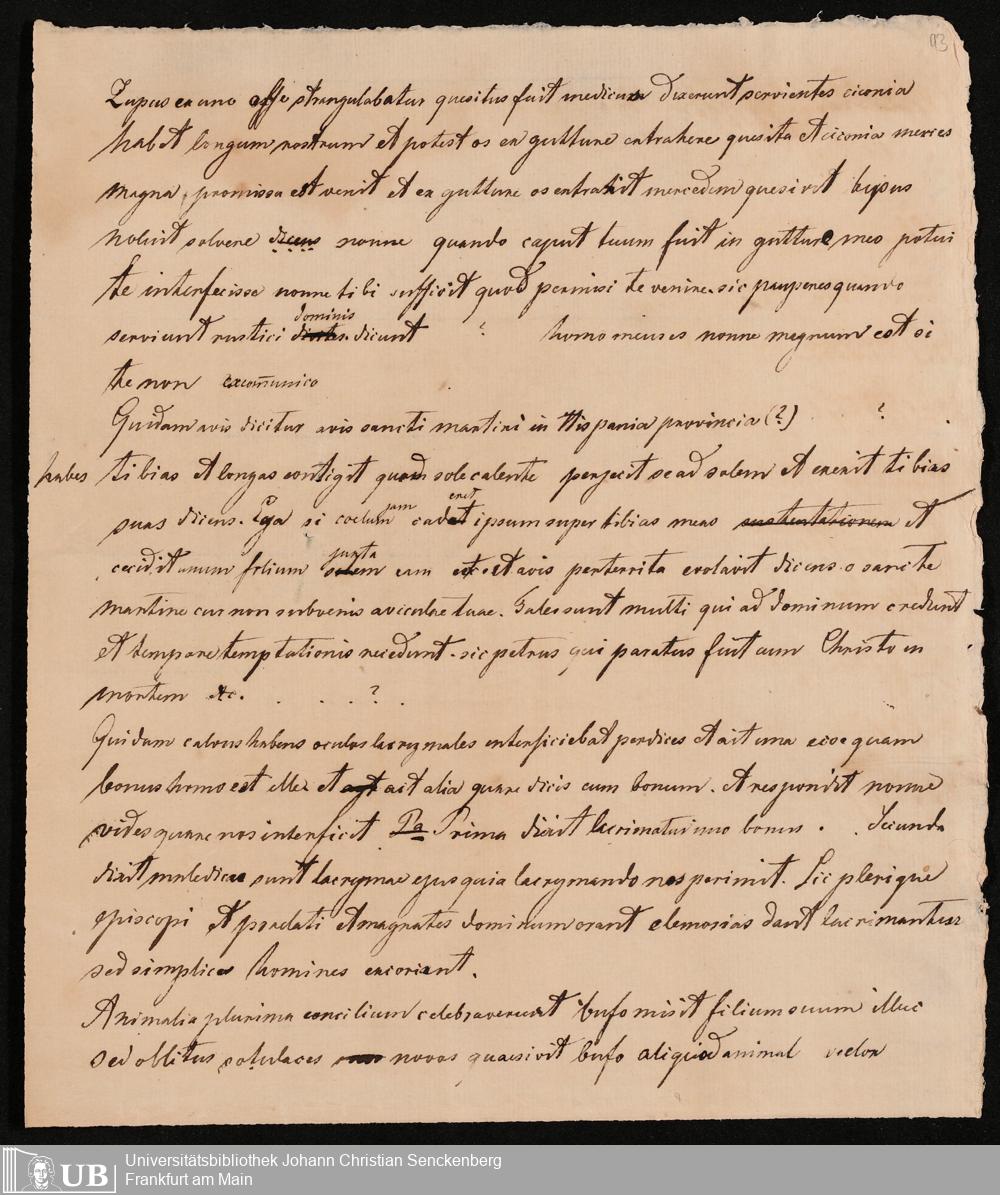 93
Lupus ex uno osse strangulabatur quesitus fuit medicus dixerunt servientes ciconia
habet longum rostrum et potest os ex gutture extrahere quesita et ciconia merces
magna promissa est venit et ex gutture os extraxit mercedem quesivit lupus
noluit solvere dicens nonne quando caput tuum fuit in gutture meo potui
te interfecisse nonne tibi sufficit quod permisi te venire. sic pauperes quando
serviunt rustici dominis dicunt ? homo meus es nonne magnum est si
te non excom̄unico
Quidam avis dicitur avis sancti martini in Hispania provincia (?) ?
habes tibias et longas contigit quod sole calente perjecit se ad solem et erexit tibias
suas dicens. Ego si coelum jam caderet ipsum super tibias meas sustentationem et
cecidit unum folium juxta eum et avis perterrita evolavit dicens o sancte
martine cur non subvenis aviculae tuae. Tales sunt multi qui ad dominum credunt
et tempore temptationis recedunt. sic petrus qui paratus fuit cum Christo in
mortem etc. . . . ? .
Quidam calvus habens oculos lacrymales interficiebat perdices et ait una ecce quam
bonus homo est ille et ait alia quare dicis eum bonum. et respondit nonne
vides quare nos interficit Pa Prima dixit lacrimatur immo bonus . . Secunda
dixit maledicae sunt lacrymae ejus quia lacrymando nos perimit. Sic plerique
episcopi et praelati et magnates dominum orant elemosias dant lacrimantur
sed simplices homines excoriant.
Animalia plurima concilium celebraverunt bufo misit filium suum illuc
sed oblitus sotulaces novos quaesivit bufo aliquod animal velox
Universitätsbibliothek Johann Christian Senckenberg
Frankfurt am Main
UB